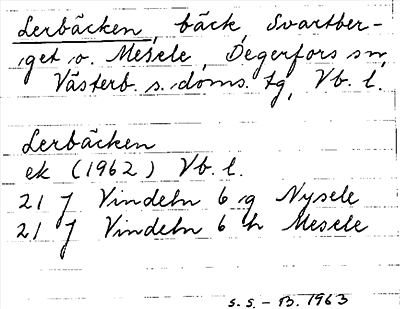 Lerbäcken, bäck, Svartber-
get o. Mesele, Degerfors sn,
Västerb. s. doms. tg, Vb. l.
Lerbäcken
ek (1962) Vb. l.
21 J Vindeln 6 g Nysele
21 J Vindeln 6 h Mesele
s. s. - B. 1963